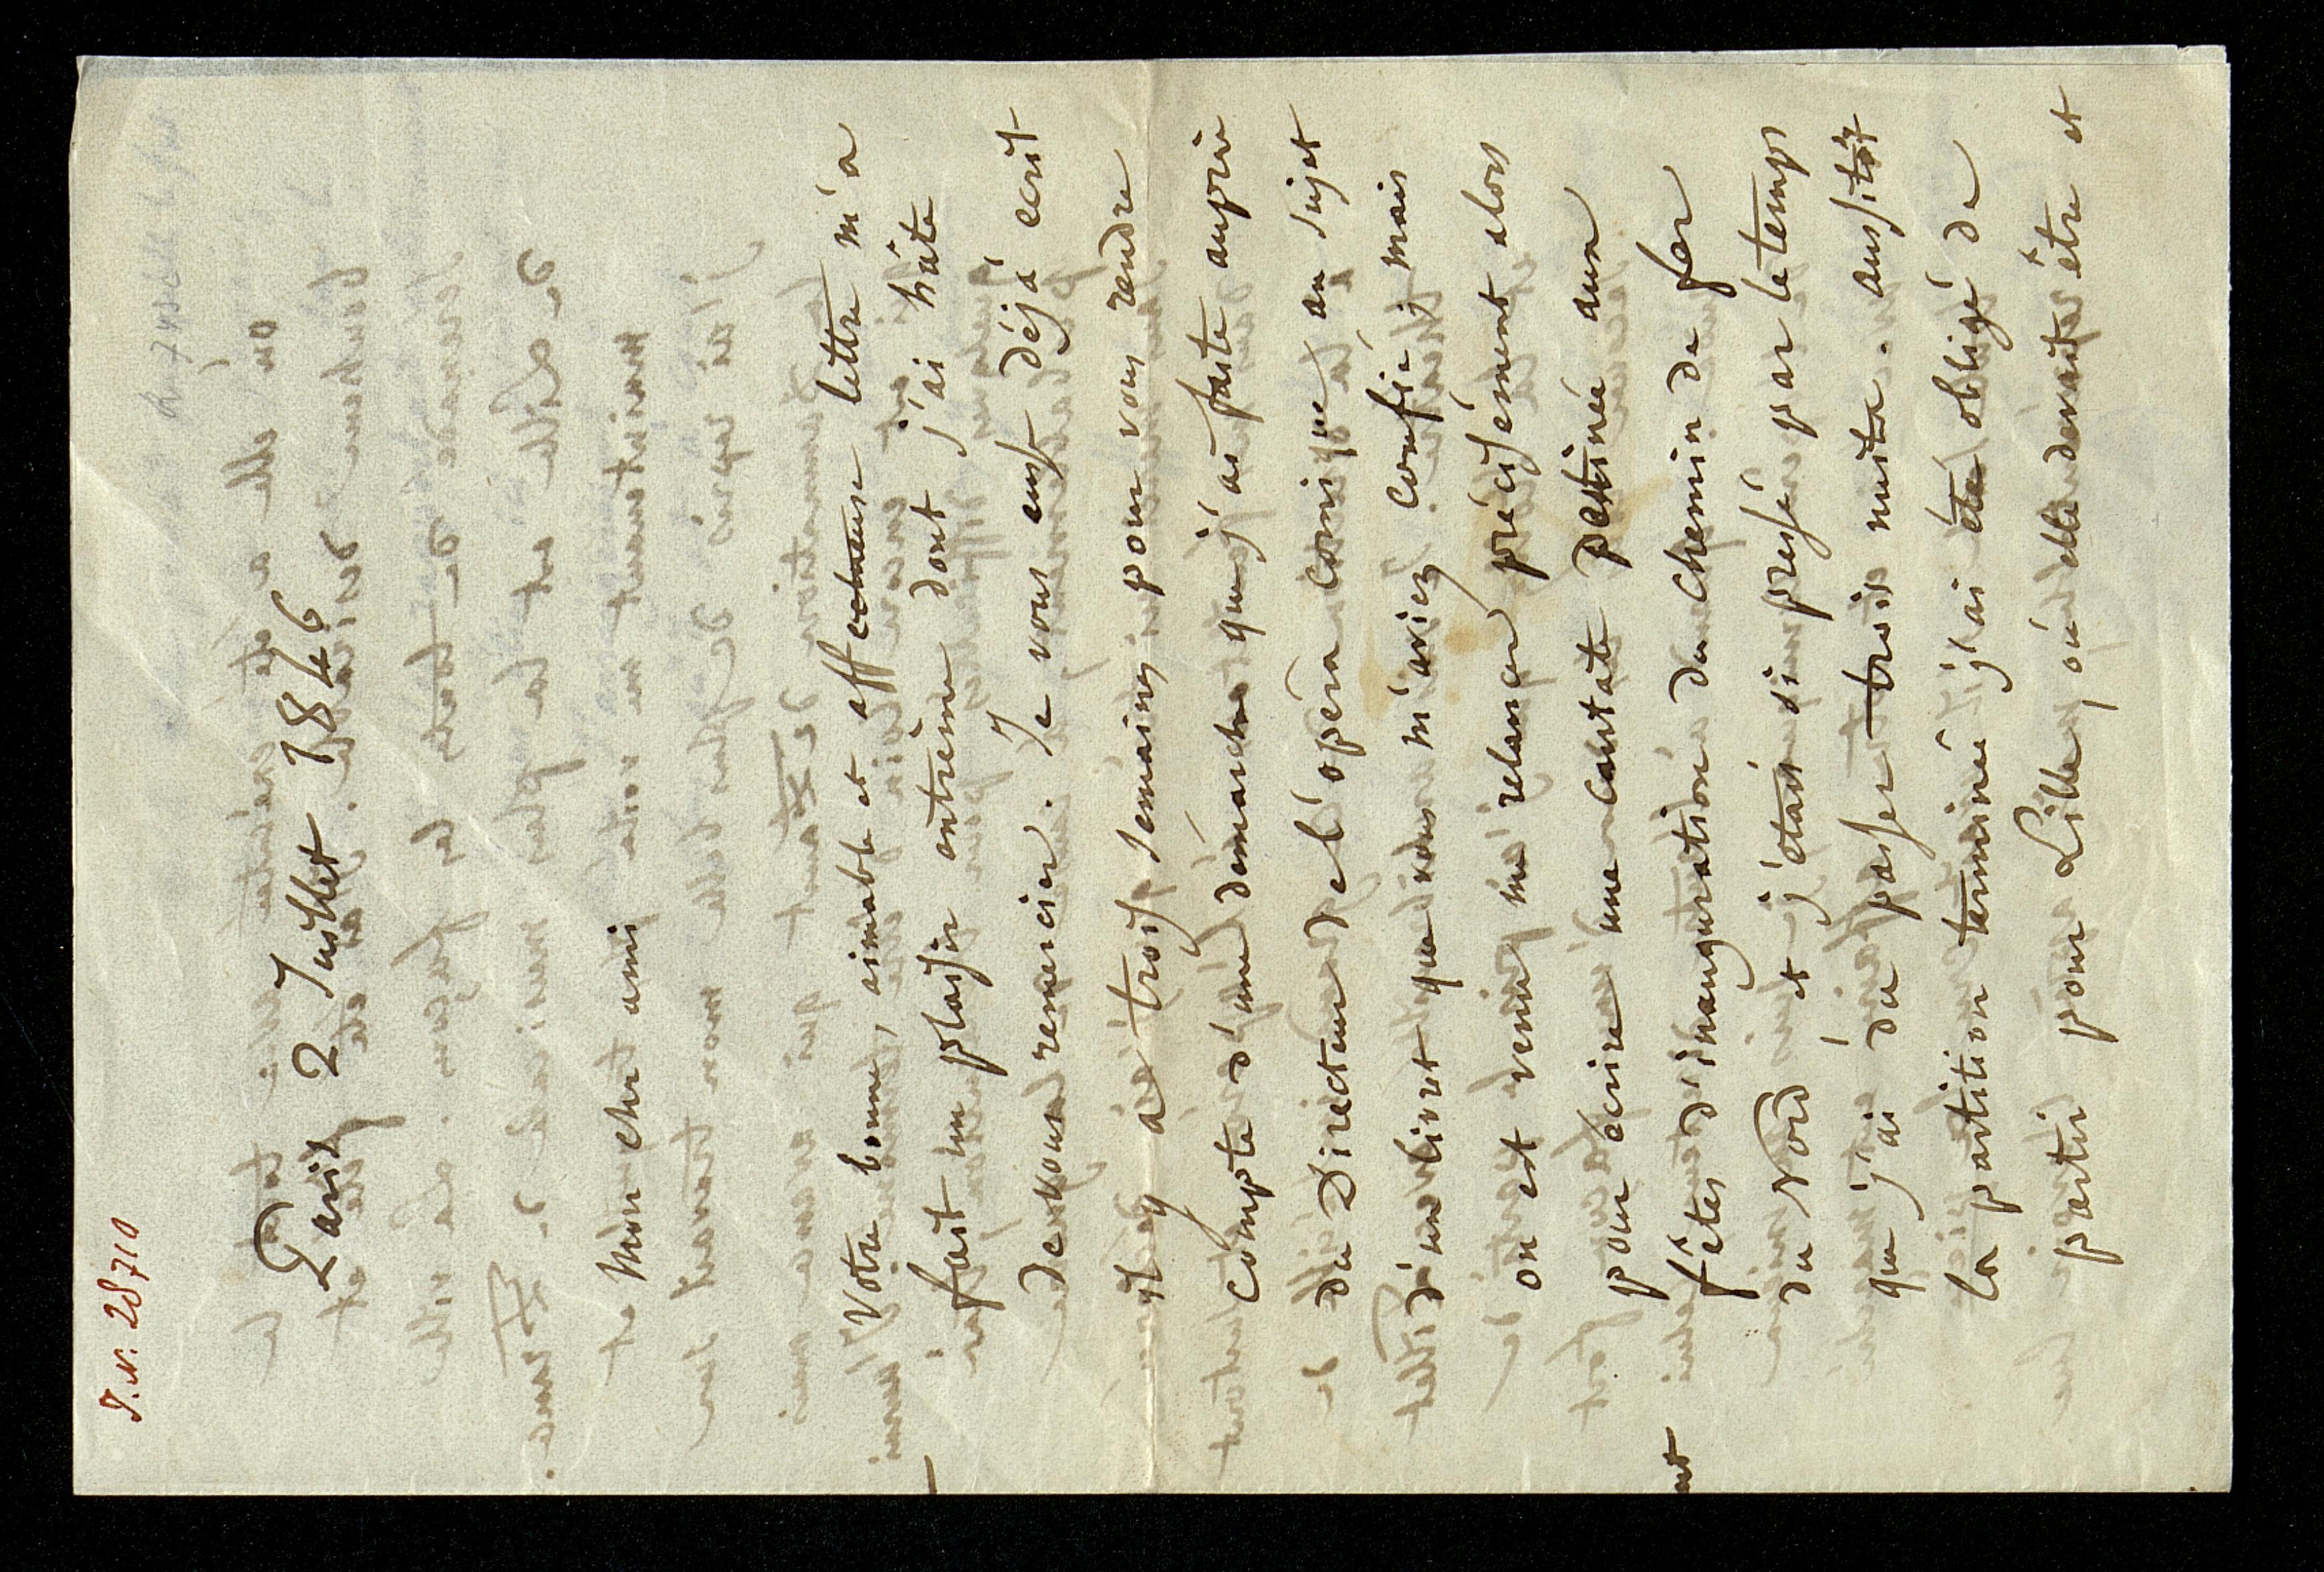 I.N. 28710
Paris 2 Juillet 1846
Mon cher ami
Votre bonne, aimable et affectueuse lettre m'a
fait un plaisir extrême dont j'ai hâte
de vous remercier. Je vous eusse déjà écrit
il y a trois semaines pour vous rendre
compte d'une démarche que j'ai faite auprès
du Directeur de l'opéra comique au sujet
d'un livret que vous m'aviez confié; mais
on est venu me relancer précisément alors
pour écrire une cantate destinée aux
fêtes d'inauguration du chemin de fer
du Nord et j'étais si pressé par le temps
que j'ai du passer trois nuits. aussitôt
la partition terminée j'ai été obligé de
partir pour Lille, où elle devait être et